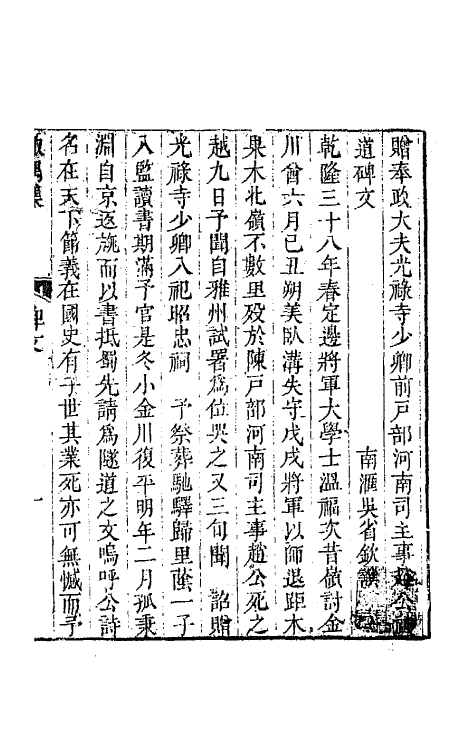 贈奉政大夫光祿寺少卿前戸部河南司主事趙公神
道碑文　南滙吳省欽譔
乾隆三十八年春定邊將軍大學士溫福次昔嶺討金
川酋六月己丑朔美臥溝失守戊戌將軍以師退距木
果木北嶺不數里歿於陳戸部河南司主事趙公死之
越九日予聞自雅州試署爲位哭之又三旬聞　詔贈
光祿寺少卿入祀昭忠祠　予祭葬馳驛歸里蔭一子
入監讀書期滿予官是冬小金川復平明年二月孤秉
淵自京返旐而以書抵蜀先請爲隧道之文嗚呼公詩
名在天下節義在國史有子世其業死亦可無憾而予
碑文
一